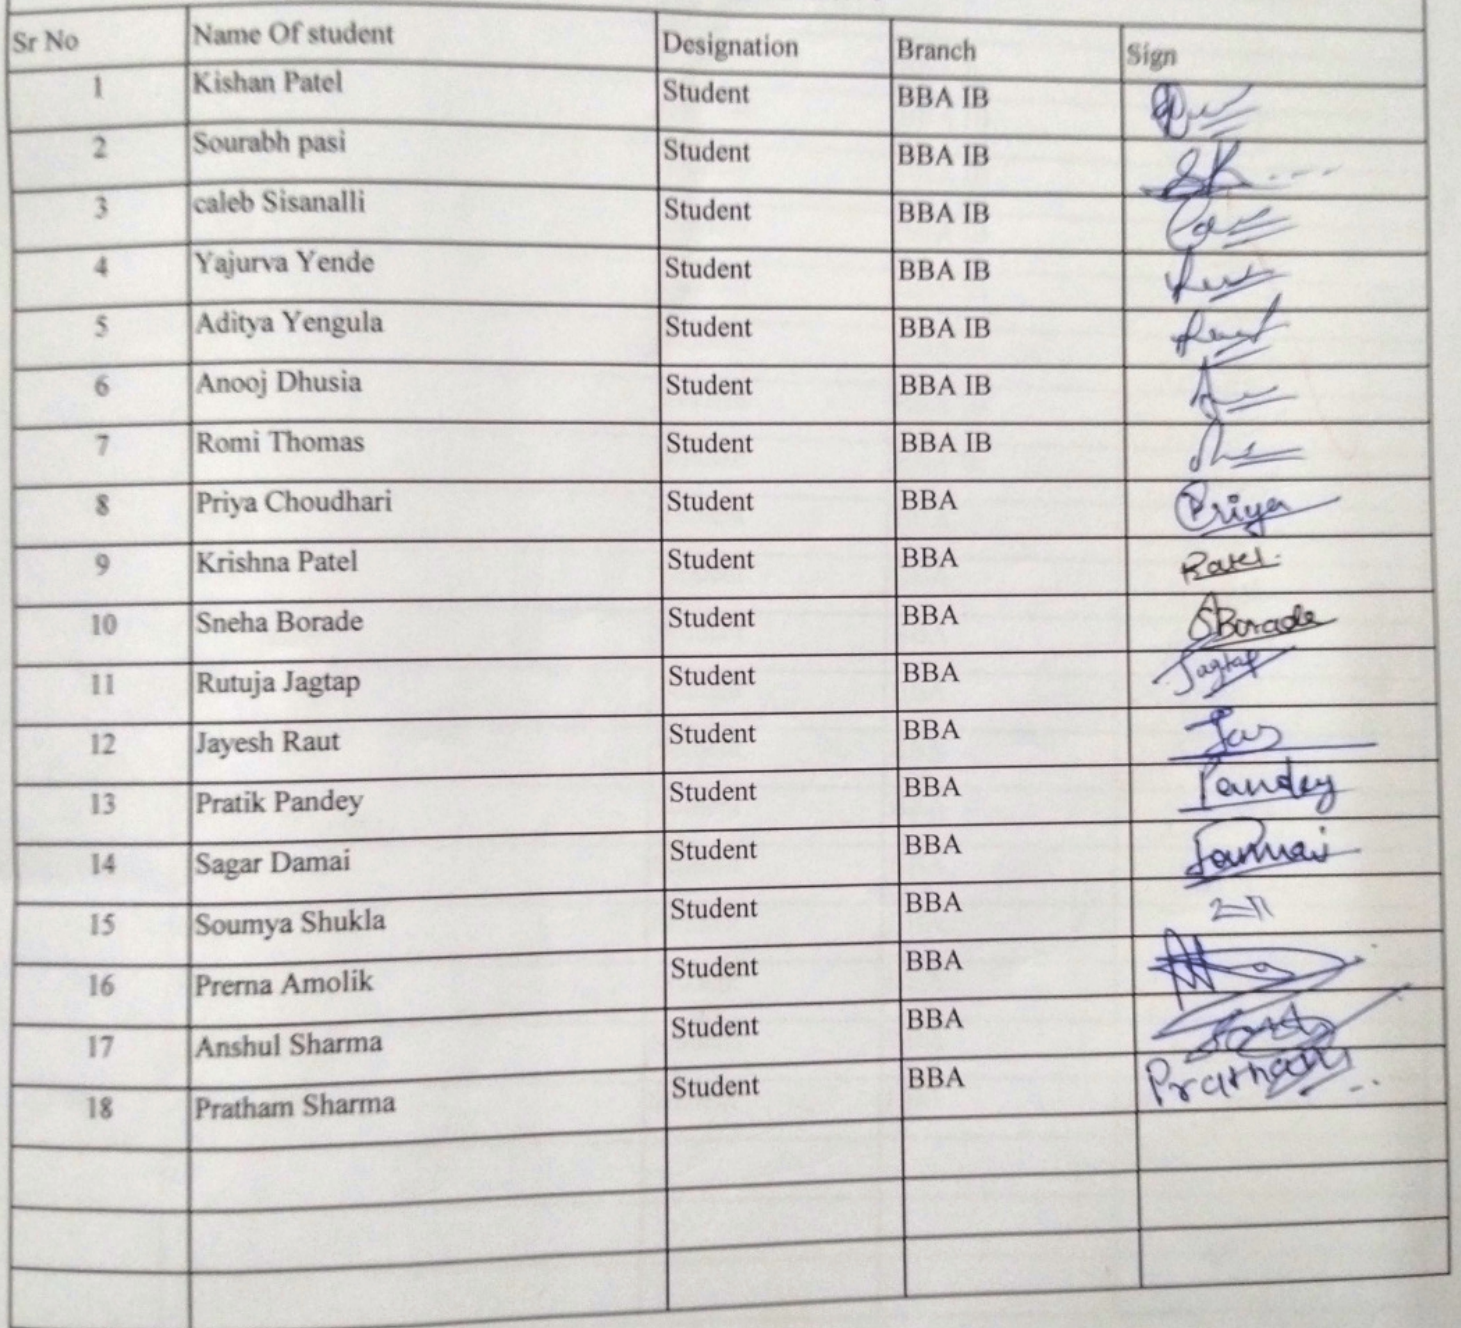 Sr No Name Of student Designation Branch Sign
1 Kishan Patel Student BBA IB
2 Sourabh pasi Student BBA IB
3 caleb Sisanalli Student BBA IB
4 Yajurva Yende Student BBA IB
5 Aditya Yengula Student BBA IB
6 Anooj Dhusia Student BBA IB
7 Romi Thomas Student BBA IB
8 Priya Choudhari Student BBA Priya
9 Krishna Patel Student BBA Patel
10 Sneha Borade Student BBA SBorade
11 Rutuja Jagtap Student BBA Jagtap
12 Jayesh Raut Student BBA
13 Pratik Pandey Student BBA Pandey
14 Sagar Damai Student BBA
15 Soumya Shukla Student BBA
16 Prerna Amolik Student BBA
17 Anshul Sharma Student BBA
18 Pratham Sharma Student BBA Pratham